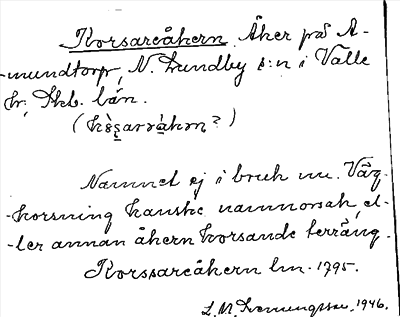 Korsareåkern. Åker på A-
mundtorp, N. Lundby s:n i Valle
hr, Skb. län.
Namnet ej i bruk nu. Väg-
korsning kanske namnorsak, el-
ler annan åkern korsande terräng.
Korssareåkern lm. 1795.
1946.